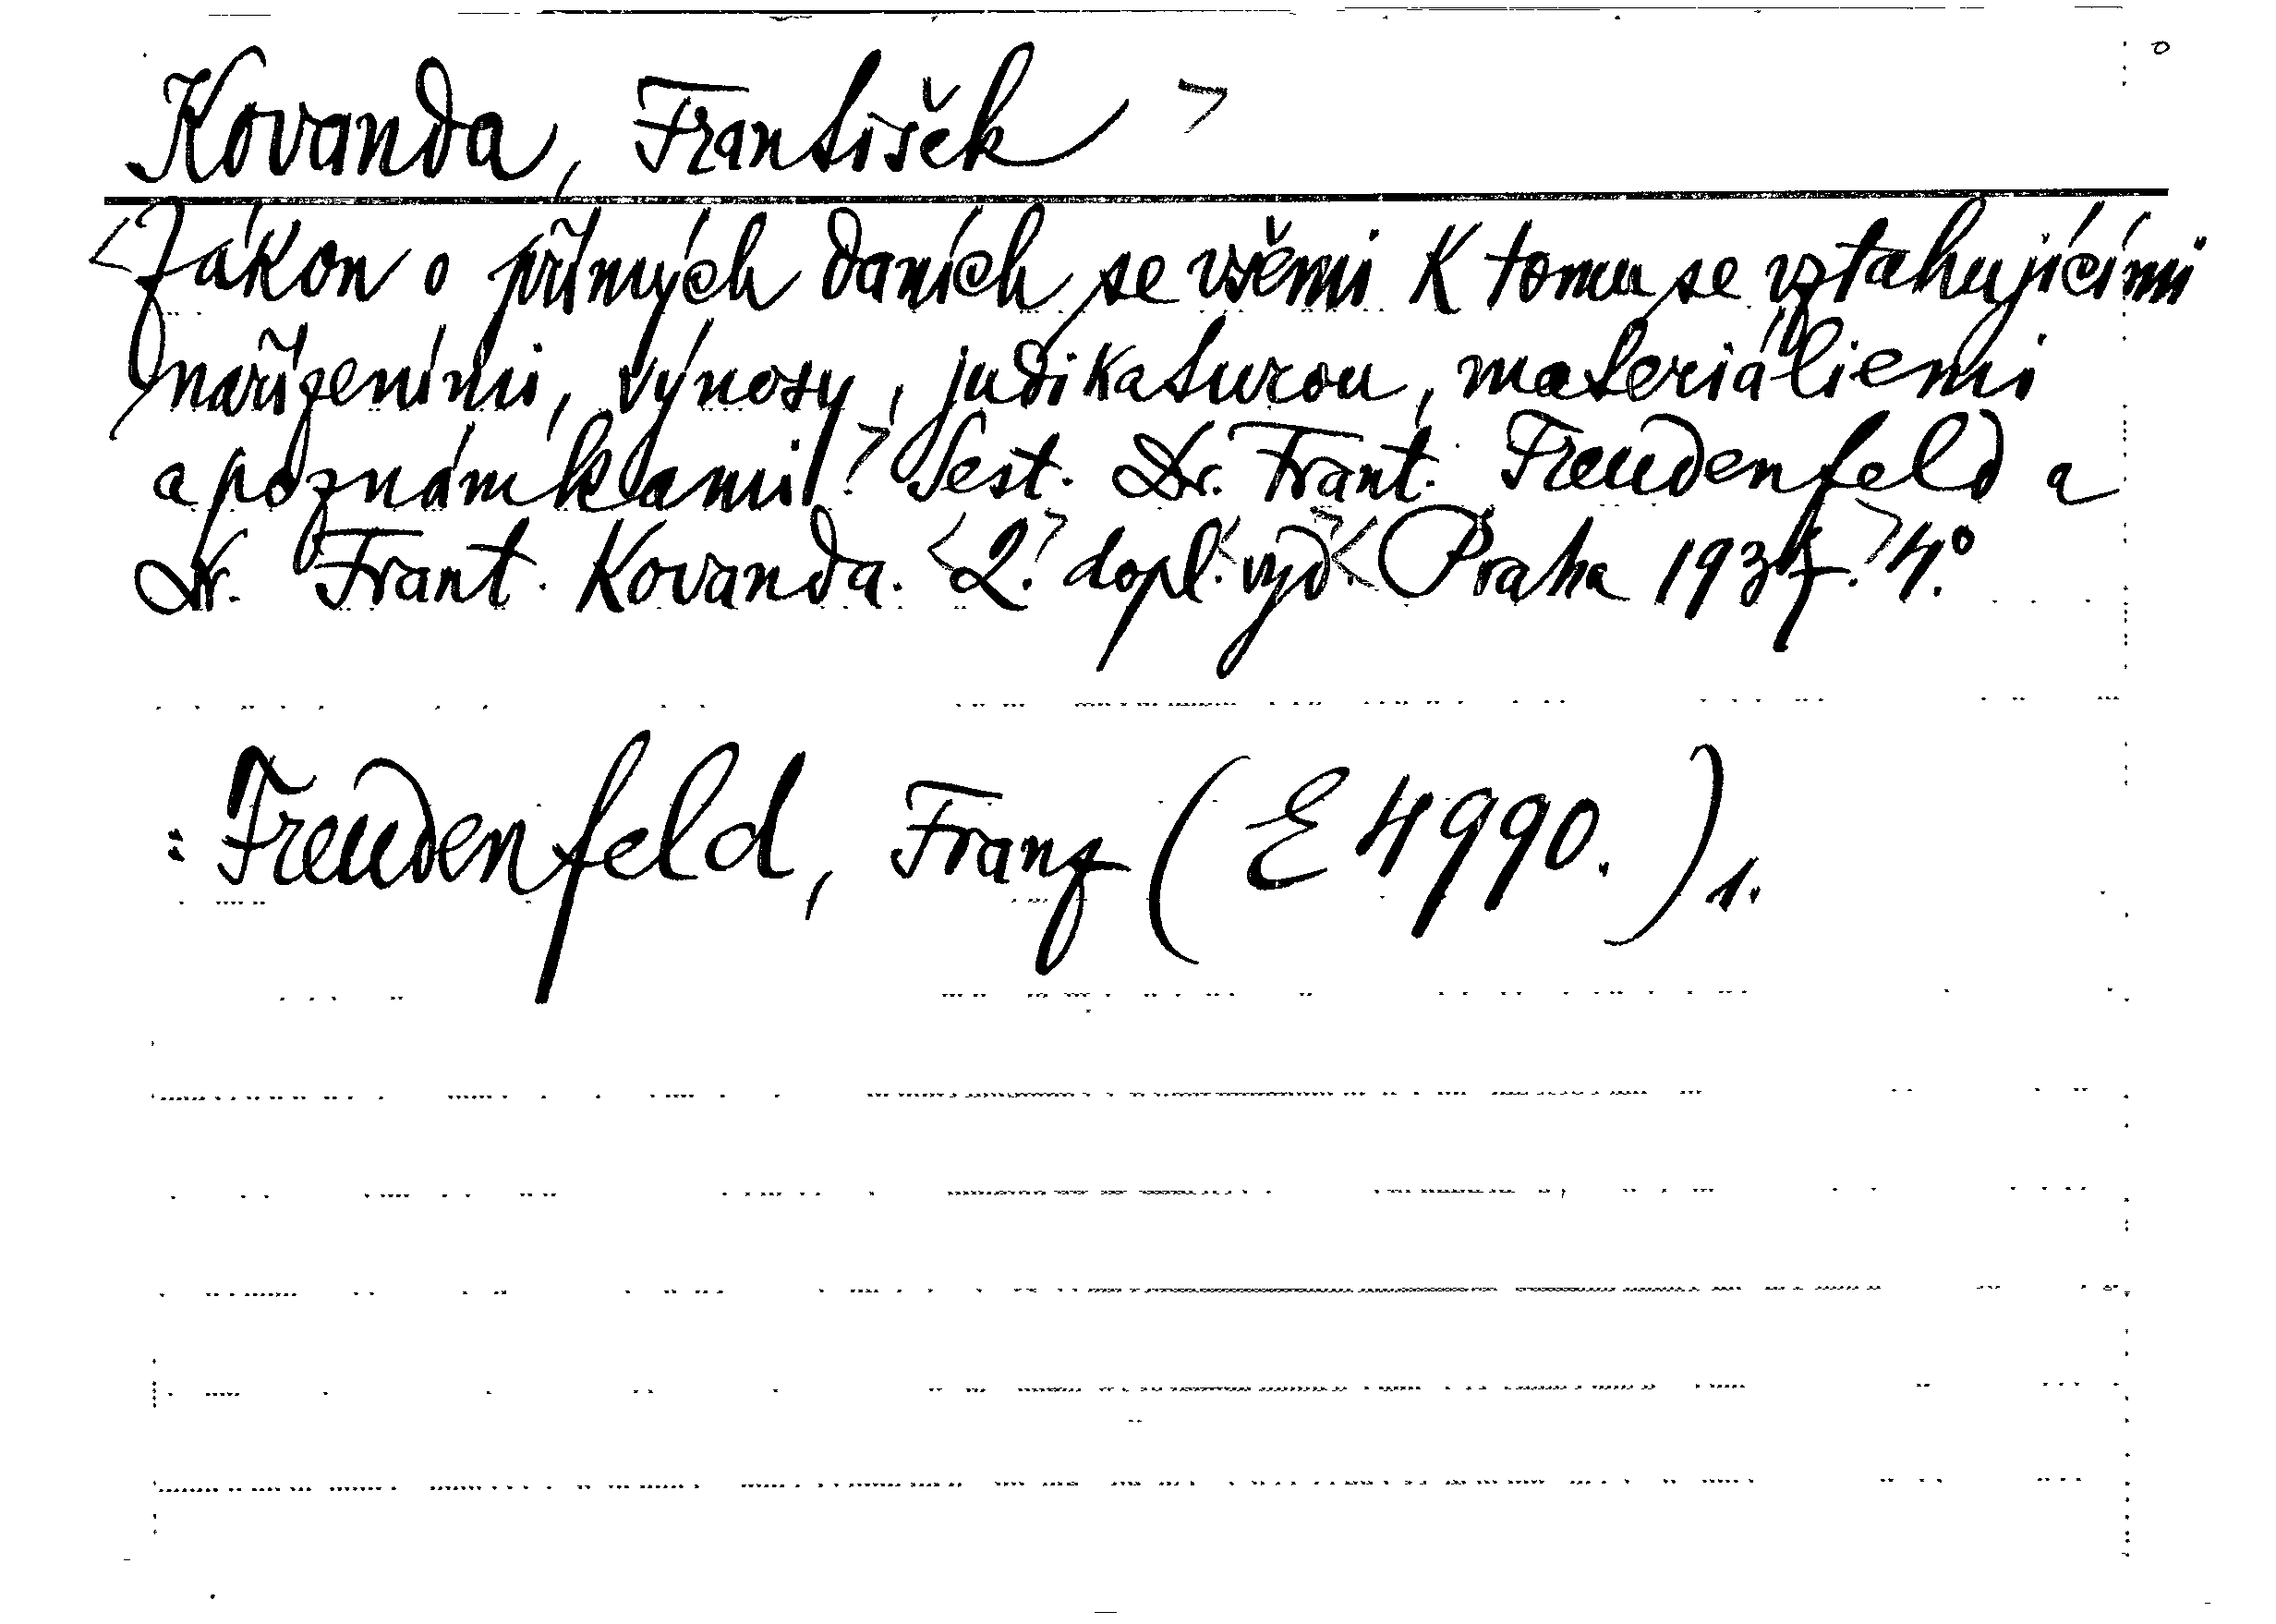 Kovanda, František >
<Zákon o přímých daních se všemi k tomu se vztahujícími
nařízeními, výnosy, judikaturou, materiáliemi
a poznámkami.> Sest. Dr. Frant. Freudenfeld a
Dr. Frant. Kovanda. <2.> dopl.<vyd.><Praha 1937.> 4.°
: Freudenfeld, Franz (E 4990.) 1.